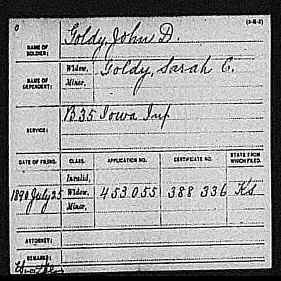 (3-6-2)
NAME OF SOLDIER: Goldy, John D.
NAME OF DEPENDENT: Widow, Goldy, Sarah C.
Minor,
SERVICE: B 35 Iowa Inf
DATE OF FILING. CLASS. APPLICATION NO. CERTIFICATE NO. STATE FROM WHICH FILED.
Invalid,
1890 July 25 Widow, 453.055 388 336 Ks
Minor,
ATTORNEY:
REMARKS: